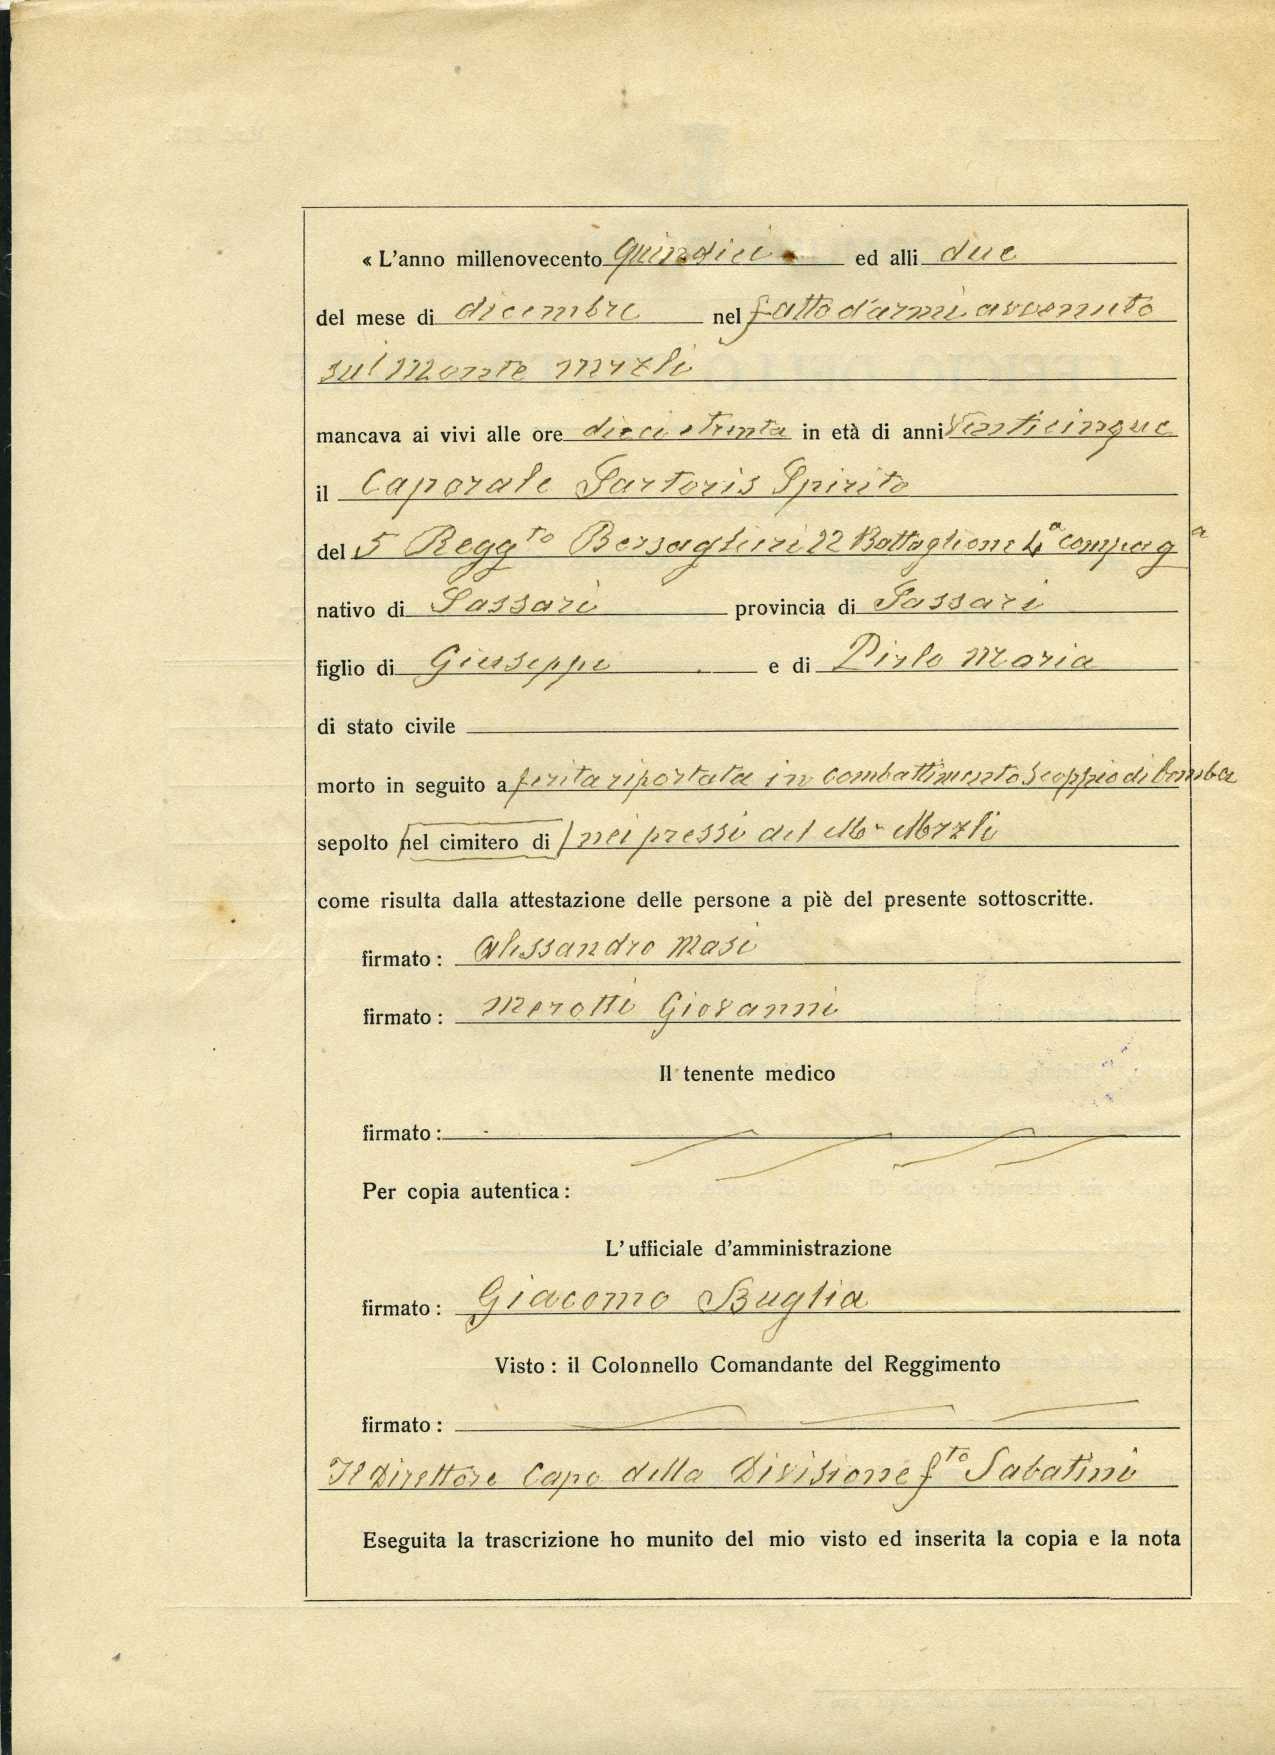 « L'anno millenovecento quindici ed alli due
del mese di dicembre nel fatto d'armi avvenuto
sul Monte Mrzli
mancava ai vivi alle ore dieci e trenta in età di anni Venticinque
il Caporale Sartoris Spirito
del 5 Regg.to Bersaglieri 22 Battaglione 4a compaga
nativo di Sassari provincia di Sassari
figlio di Giuseppe e di Pirlo Maria
di stato civile
morto in seguito a ferita riportata in combattimento scoppio di bomba
sepolto nel cimitero di / nei pressi del Me Mrzli
come risulta dalla attestazione delle persone a piè del presente sottoscritte.
firmato: Alessandro Masi
firmato: Merotti Giovanni
Il tenente medico
firmato:
Per copia autentica:
L'ufficiale d'amministrazione
firmato: Giacomo Buglia
Visto: il Colonnello Comandante del Reggimento
firmato:
Il Direttore Capo della Divisione fto Sabatini
Eseguita la trascrizione ho munito del mio visto ed inserita la copia e la nota